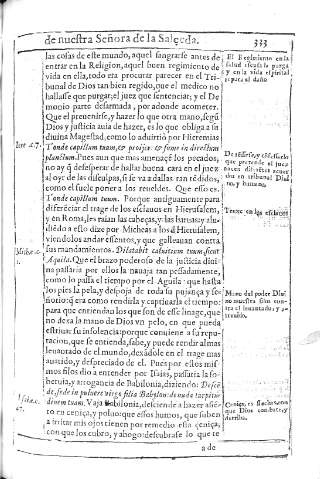 de nuestra Señora de la Salceda.
333
las cosas de este mundo, aquel sangrarse antes de
entrar en la Religion, aquel buen regimiento de
vida en ella, todo era procurar parecer en el Tri
bunal de Dios tan bien regido, que el medico no
hallasse que purgar; el juez que sentenciar; y el De
monio parte desarmada, por adonde acometer.
Que el prevenirse, y hazer lo que otra mano, segũ
Dios y justicia auia de hazer, es lo que obliga a su
diuina Magestad, como lo aduirtio por Hieremias
Tonde capillum tuum, & proijce & sume in directum
planctum. Pues aun que mas amenaçe los pecados,
no ay q̃ desesperar de hallar buena cara en el juez
al oyr de las disculpas, si se va a dallas tan rẽdidos,
como el suele poner a los reueldes. Que esso es.
Tonde capillum tuum. Porque antiguamente para
diferẽcia el trage de los esclauos en Hierusalem,
y en Roma, les raian las cabeças, y las baruas y alu
diẽdo a esto dize por Micheas a los đ Hierusalem,
viendolos andar essentos, y que galleauan contra
sus mandamientos. Dilatabo caluitium tuum, sicut
Aquila. Que el brazo poderoso de la justicia diui
na passaria por ellos la nauaja tan pesadamente,
como lo passa el tiempo por el Aguila que hasta
los pies la pela, y despoja de toda su pujança y se-
ñorio: q̃ era como rendirla y captiuarla el tiempo:
para que entiendan los que son de esse linage, que
no de xa la mano de Dios vn pelo, en que pueda
estriuar su insolencia: porque conuiene a su repu-
tacion, que se entienda, sabe, y puede rendir al mas
leuantado de el mundo, dexãdole en el trage mas
auatido, y despreciado de el. Pues por estos mis-
mos filos dio a entender por Isaias, passaria la so-
beruia, y arrogancia de Babilonia, diziendo: Descẽ
de, sede in puluere virgo filia Babylon:
Vaya Babilonia, desciende a hazer assiẽ
to en ceniça, y poluo: que essos humos, que suben
a irritar mis ojos tienen por remedio essa ceniça,
con que los cubro, y ahogo: descubrase lo que te
a de
Iere. c. 7.
Miche. c.
1.
Isai. c.
47.
El Regimiento en la
salud escusa la purga
y en la vida espiritual
es para el daño
como prevenir el juez
en tribunal Diui
no, y humano.
Traxe en los esclauos
Mano del poder Diui
no muestra sino con-
tra el leuantado: y a-
treuido.
Ceniça, es
que Dios combate, y
derriba.